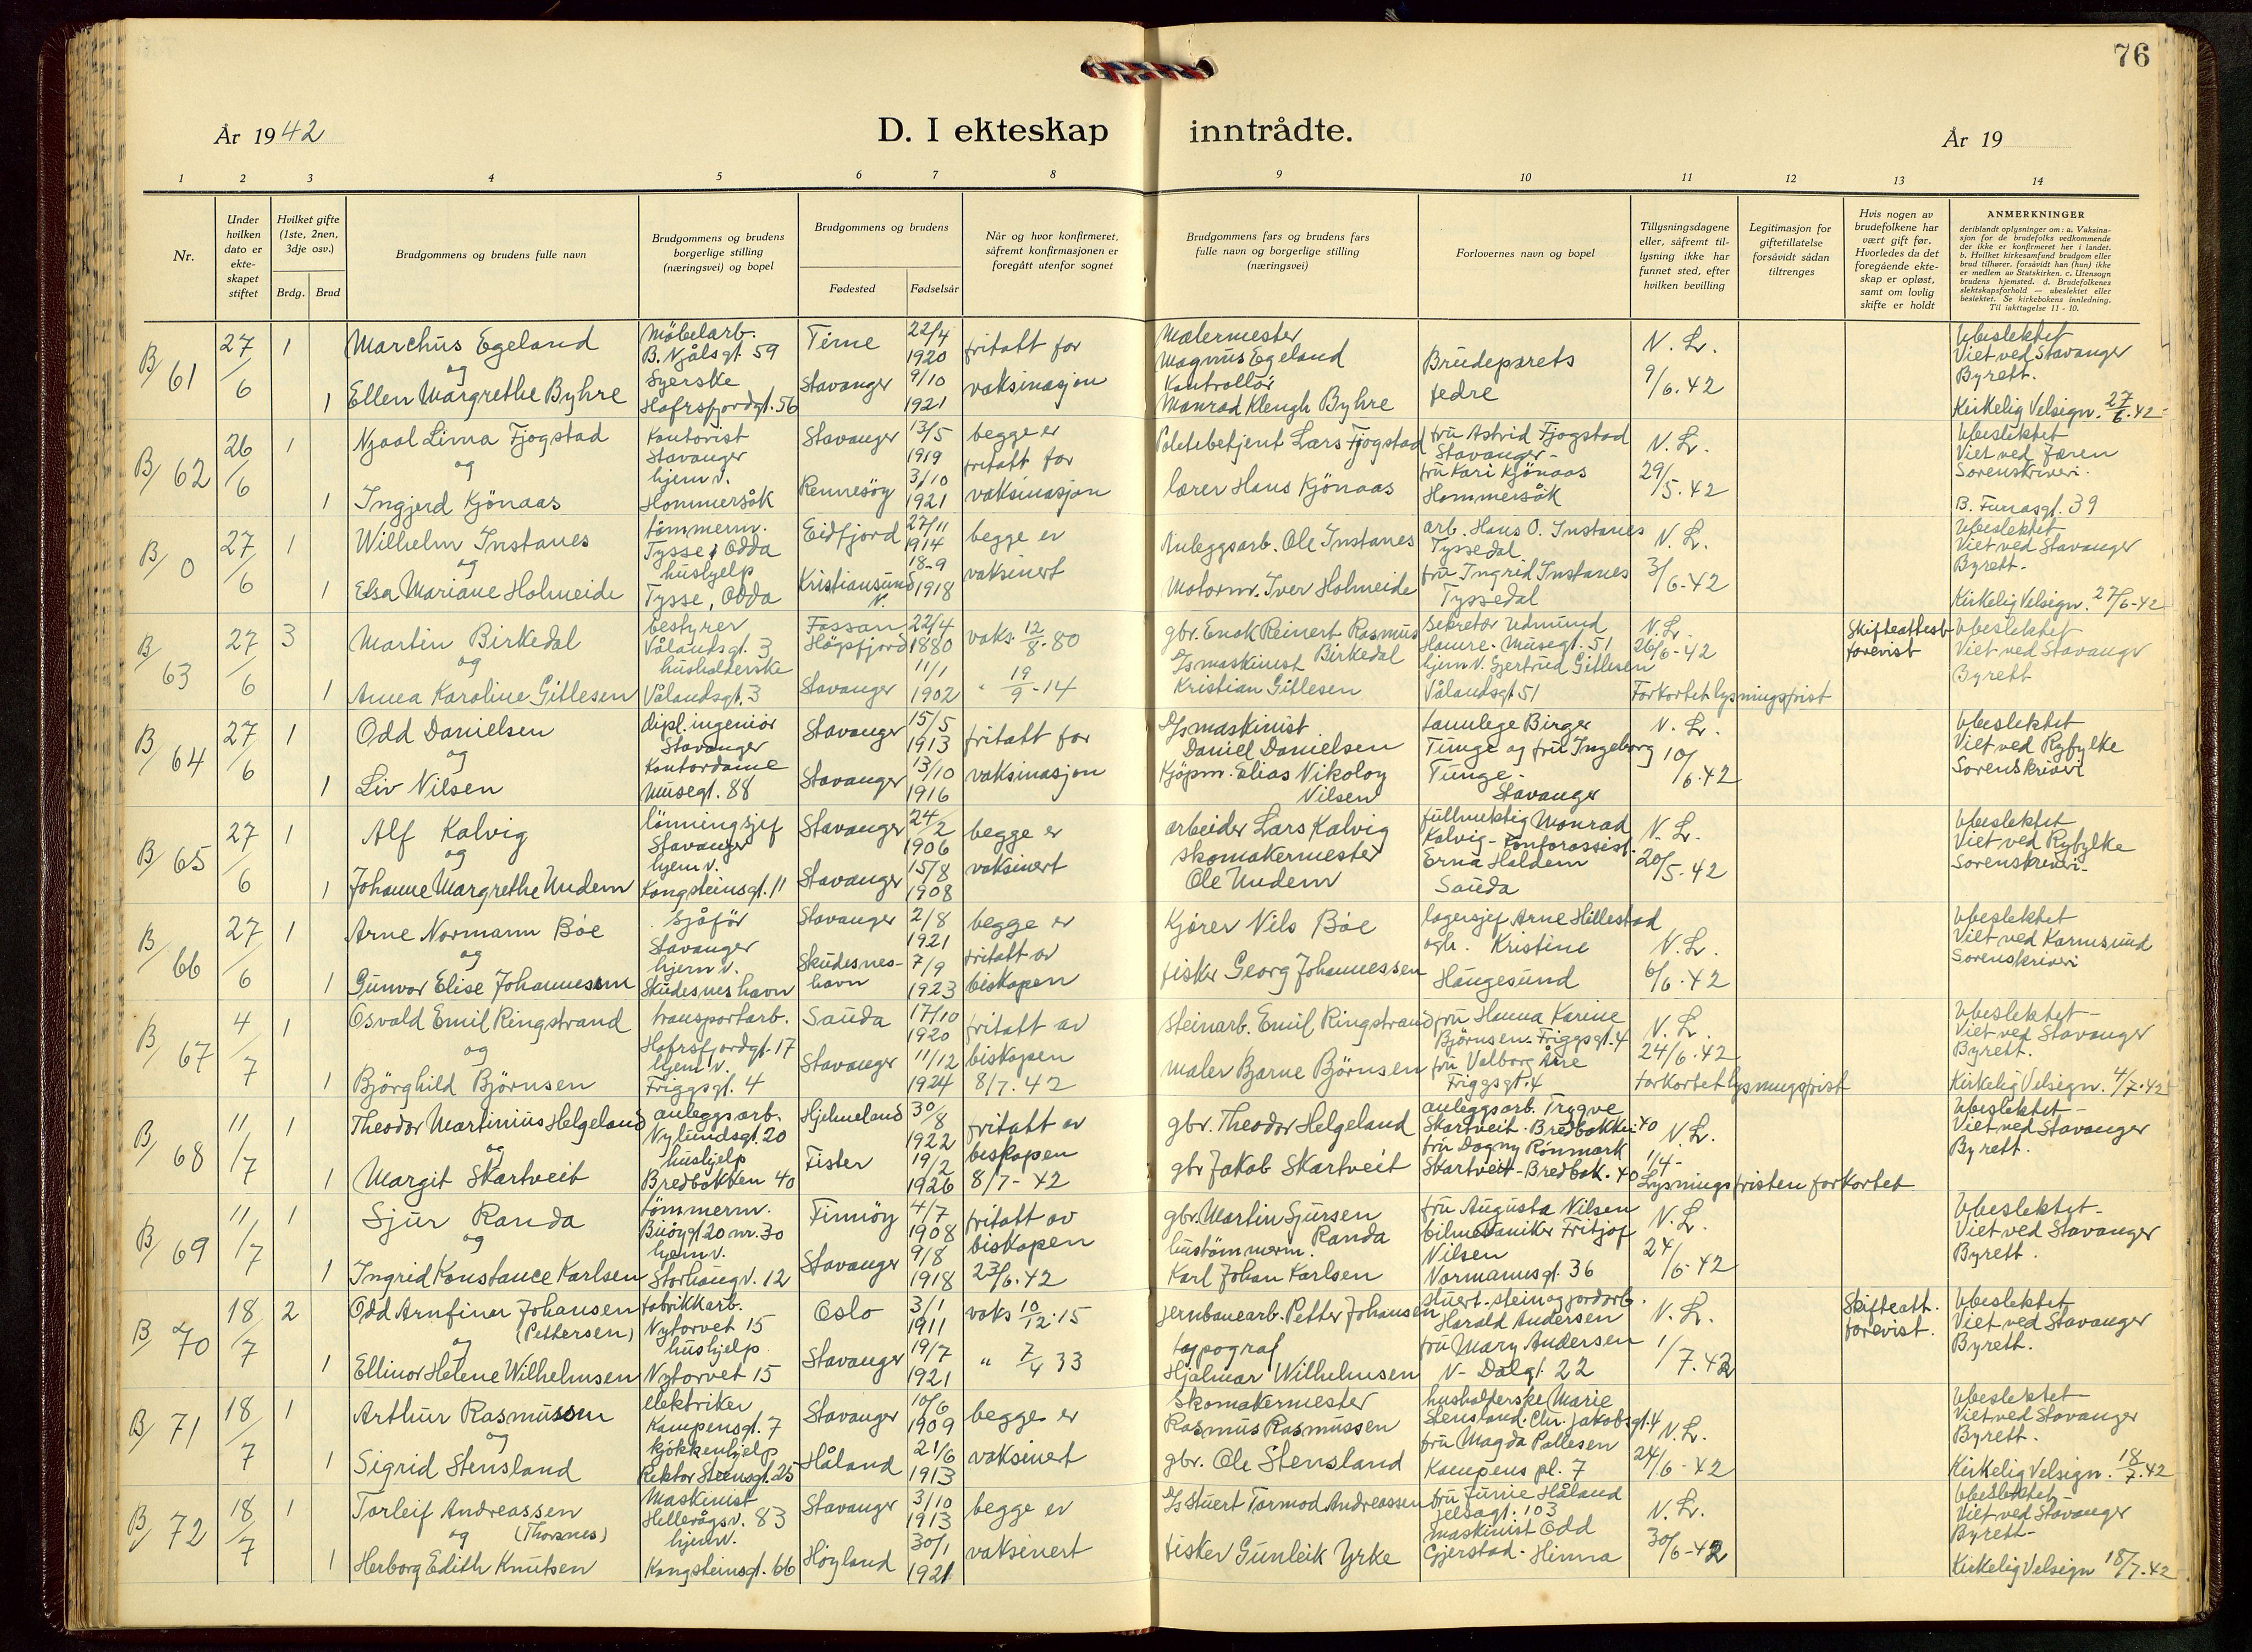 76
År 1942
D. I ekteskap inntrådte.
År 19
1 2 3 4 5 6 7 8 9 10 11 12 13 14
Nr.
Under
hvilken
dato er
ekte-
skapet
stiftet
Hvilket gifte
(1ste, 2nen,
3dje osv.)
Brdg. Brud
Brudgommens og brudens fulle navn
Brudgommens og brudens
borgerlige stilling
(næringsvei) og bopel
Brudgommens og brudens
Fødested Fødselsår
Når og hvor konfirmeret,
såfremt konfirmasjonen er
foregått utenfor sognet
Brudgommens fars og brudens fars
fulle navn og borgerlige stilling
(næringsvei)
Forlovernes navn og bopel
Tillysningsdagene
eller, såfremt til-
lysning ikke har
funnet sted, efter
hvilken bevilling
Legitimasjon for
giftetillatelse
forsåvidt sådan
tiltrenges
Hvis nogen av
brudefolkene har
vært gift før.
Hvorledes da det
foregående ekte-
skap er opløst,
samt om lovlig
skifte er holdt
ANMERKNINGER
deriblandt oplysninger om: a. Vaksina-
sjon for de brudefolks vedkommende
der ikke er konfirmeret her i landet.
b. Hvilket kirkesamfund brudgom eller
brud tilhører, forsåvidt han (hun) ikke
er medlem av Statskirken. c. Utensogn
brudens hjemsted. d. Brudefolkenes
slektskapsforhold — ubeslektet eller
beslektet. Se kirkebokens innledning.
Til iakttagelse 11 - 10.
B/61
27/6
1
1
Marchus Egeland
og
Ellen Margrethe Byhre
Möbelarb.
B. Njålsgt. 59
Syerske
Hafrsfjordgt. 56
Time
Stavanger
22/4
1920
9/10
1921
fritatt for
vaksinasjon
Malermester
Magnus Egeland
Kontrollör
Monrad Klengh Byhre
Brudeparets
fedre
N. L.
9/6.42
Ubeslektet
Viet ved Stavanger
Byrett.
Kirkelig Velsign. 27/6.42
B/62
26/6
1
1
Njaal Lima Fjogstad
og
Ingjerd Kjönaas
Kontorist
Stavanger
hjemv.
Hommersåk
Stavanger
Rennesöy
13/5
1919
3/10
1921
begge er
fritatt for
vaksinasjon
Politibetjent Lars Fjogstad
lærer Hans Kjönaas
fru Astrid Fjogstad
Stavanger -
fru Kari Kjönaas
Hommersåk
N. L.
29/5.42
Ubeslektet
Viet ved Jæren
Sorenskriveri.
B. Funasgt. 39
B/0
27/6
1
1
Wilhelm Instanes
og
Elsa Mariane Holmeide
tömmerm.
Tysse, Odda
hushjelp
Tysse, Odda
Eidfjord
Kristiansund
N.
27/11
1914
18-9
1918
begge er
vaksinert
Anleggsarb. Ole Instanes
Motorm. Iver Holmeide
arb. Hans O. Instanes
Tyssedal
fru Ingrid Instanes
Tyssedal
N. L.
3/6-42
Ubeslektet
Viet ved Stavanger
Byrett.
Kirkelig Velsign. 27/6-42
B/63
27/6
3
1
Martin Birkedal
og
Anna Karoline Gitlesen
bestyrer
Vålandsgt. 3
husholderske
Vålandsgt. 3
Fossan
Högsfjord
Stavanger
22/4
1880
11/1
1902
vaks. 12/8.80
" 19/9-14
gbr. Enok Reinert Rasmus
Birkedal
D/s maskinist
Kristian Gitlesen
Sekretær Edmund
Haure - Musegt. 51
hjemv. Gjertrud Gitlesen
Vålandsgt 51
N. L.
26/6-42
Forkortet lysningsfrist
Skifteattest
forevist
Ubeslektet
Viet ved Stavangr
Byrett
B/64
27/6
1
1
Odd Danielsen
og
Liv Nilsen
dipl. ingeniör
Stavanger
Kontordame
Musegt. 88
Stavanger
Stavanger
15/5
1913
13/10
1916
fritatt for
vaksinasjon
D/s maskinist
Daniel Danielsen
Kjöpm. Elias Nikoloy
Nilsen
tannlege Birger
Tunge og fru Ingeborg
Tunge -
Stavanger
N. L.
10/6.42
Ubeslektet
Viet ved Ryfylke
Sorenskriveri
B/65
27/6
1
1
Alf Kalvig
og
Johanne Margrethe Undem
lönningsjef
Stavanger
hjemv.
Kongsteinsgt. 11
Stavanger
Stavanger
24/2
1906
15/8
1908
begge er
vaksinert
arbeider Lars Kalvig
skomakermester
Ole Undem
fullmektig Monrad
Kalvig - Kontorassist.
Erna Haldem
Sauda
N. L.
20/5.42
Ubeslektet
Viet ved Ryfylke
Sorenskriveri-
B/66
27/6
1
1
Arne Normann Böe
og
Gunvor Elise Johannessen
Sjåför
Stavanger
hjemv.
Skudesneshavn
Stavanger
Skudesnes-
havn
2/8
1921
7/9
1923
begge er
fritatt av
biskopen
Kjörer Nils Böe
fisker Georg Johannessen
lagersjef Arne Hillestad
og h. Kristine
Haugesund
N. L.
6/6.42
Ubeslektet
Viet ved Karmsund
Sorenskriveri
B/67
4/7
1
1
Osvald Emil Ringstrand
og
Björghild Björnsen
transportarb.
Hafrsfjordgt. 17
hjemv.
Friggsgt. 4
Sauda
Stavanger
17/10
1920
11/12
1924
fritatt av
biskopen
8/7. 42
steinarb. Emil Ringstrand
maler Bjarne Björnsen
fru Hanna Karine
Björnsen. Friggsgt. 4
fru Valborg Årre
Friggsgt. 4
N. L.
24/6.42
Forkortet lysningsfrist
Ubeslektet -
Viet ved Stavanger
Byrett.
Kirkelig Velsign. 4/7.42
B/68
11/7
1
1
Theodor Martinius Helgeland
og
Margit Skartveit
anleggsarb.
Nylundsgt. 20
hushjelp
Bredbakken 40
Hjelmeland
Fister
30/8
1922
19/2
1926
fritatt av
biskopen
8/7- 42
gbr. Theodor Helgeland
gbr Jakob Skartveit
anleggsarb. Trygve
Skartveit. Bredbakken 40
fru Dagny Rönmark
Skartveit - Bredbak. 40
N. L.
1/4-
Lysningsfristen forkortet
Ubeslektet -
Viet ved Stavanger
Byrett.
B/69
11/7
1
1
Sjur Randa
og
Ingrid Konstance Karlsen
tömmerm.
Buöygt 20 nr. 30
hjemv.
Storhaugv. 12
Finnöy
Stavanger
4/7
1908
9/8
1918
fritatt av
biskopen
23/6.42
gbr. Martin Sjursen
Randa
hustömmerm.
Karl Johan Karlsen
fru Augusta Nilsen
bilmekaniker Fritjof
Nilsen
Normannsgt. 36
N. L.
24/6-42
Ubeslektet -
Viet ved Stavanger
Byrett.
B/70
18/7
2
1
Odd Arnfinn Johansen
og (Pettersen)
Ellinor Helene Wilhelmsen
fabrikkarb.
Nytorvet 15
hushjelp
Nytorvet 15
Oslo
Stavanger
3/1
1911
19/7
1921
vaks 10/12.15
" 7/4 33
jernbanearb. Petter Johansen
typograf
Hjalmar Wilhelmsen
stuert. stein og jordarb.
Harald Andersen
fru Mary Andersen
N- Dalgt. 22
N. L.
1/7.42
Skifteatt.
forevist.
Ubeslektet
Viet ved Stavanger
Byrett.
B/71
18/7
1
1
Arthur Rasmussen
og
Sigrid Stensland
elektriker
Kampensgt. 7
kjökkenhjelp
Rektor Steensgt. 25
Stavanger
Håland
10/6
1909
21/6
1913
begge er
vaksinert
Skomakermester
Rasmus Rasmussen
gbr. Ole Stensland
husholderske Marie
Stensland. Chr. Jakobsgt. 4
fru Magda Pallesen
Kampens pl. 7
N. L.
24/6-42
Ubeslektet
Viet ved Stavanger
Byrett.
Kirkelig Velsign. 18/7.42
B/72
18/7
1
1
Torleif Andreassen
og (Thorsnes)
Herborg Edith Knutsen
Maskinist
Hillevågsv. 83
hjemv.
Kongsteinsgt. 66
Stavanger
Höyland
3/10
1913
30/1
1921
begge er
vaksinert
D/s Stuert Tormod Andreassen
fisker Gunleik Yrke
fru Junie Håland
Jelsagt. 103
maskinist Odd
Gjerstad - Hinna
N. L.
30/6-42
Ubeslektet
Viet ved Stavanger
Byrett-
Kirkelig Velsign 18/7.42